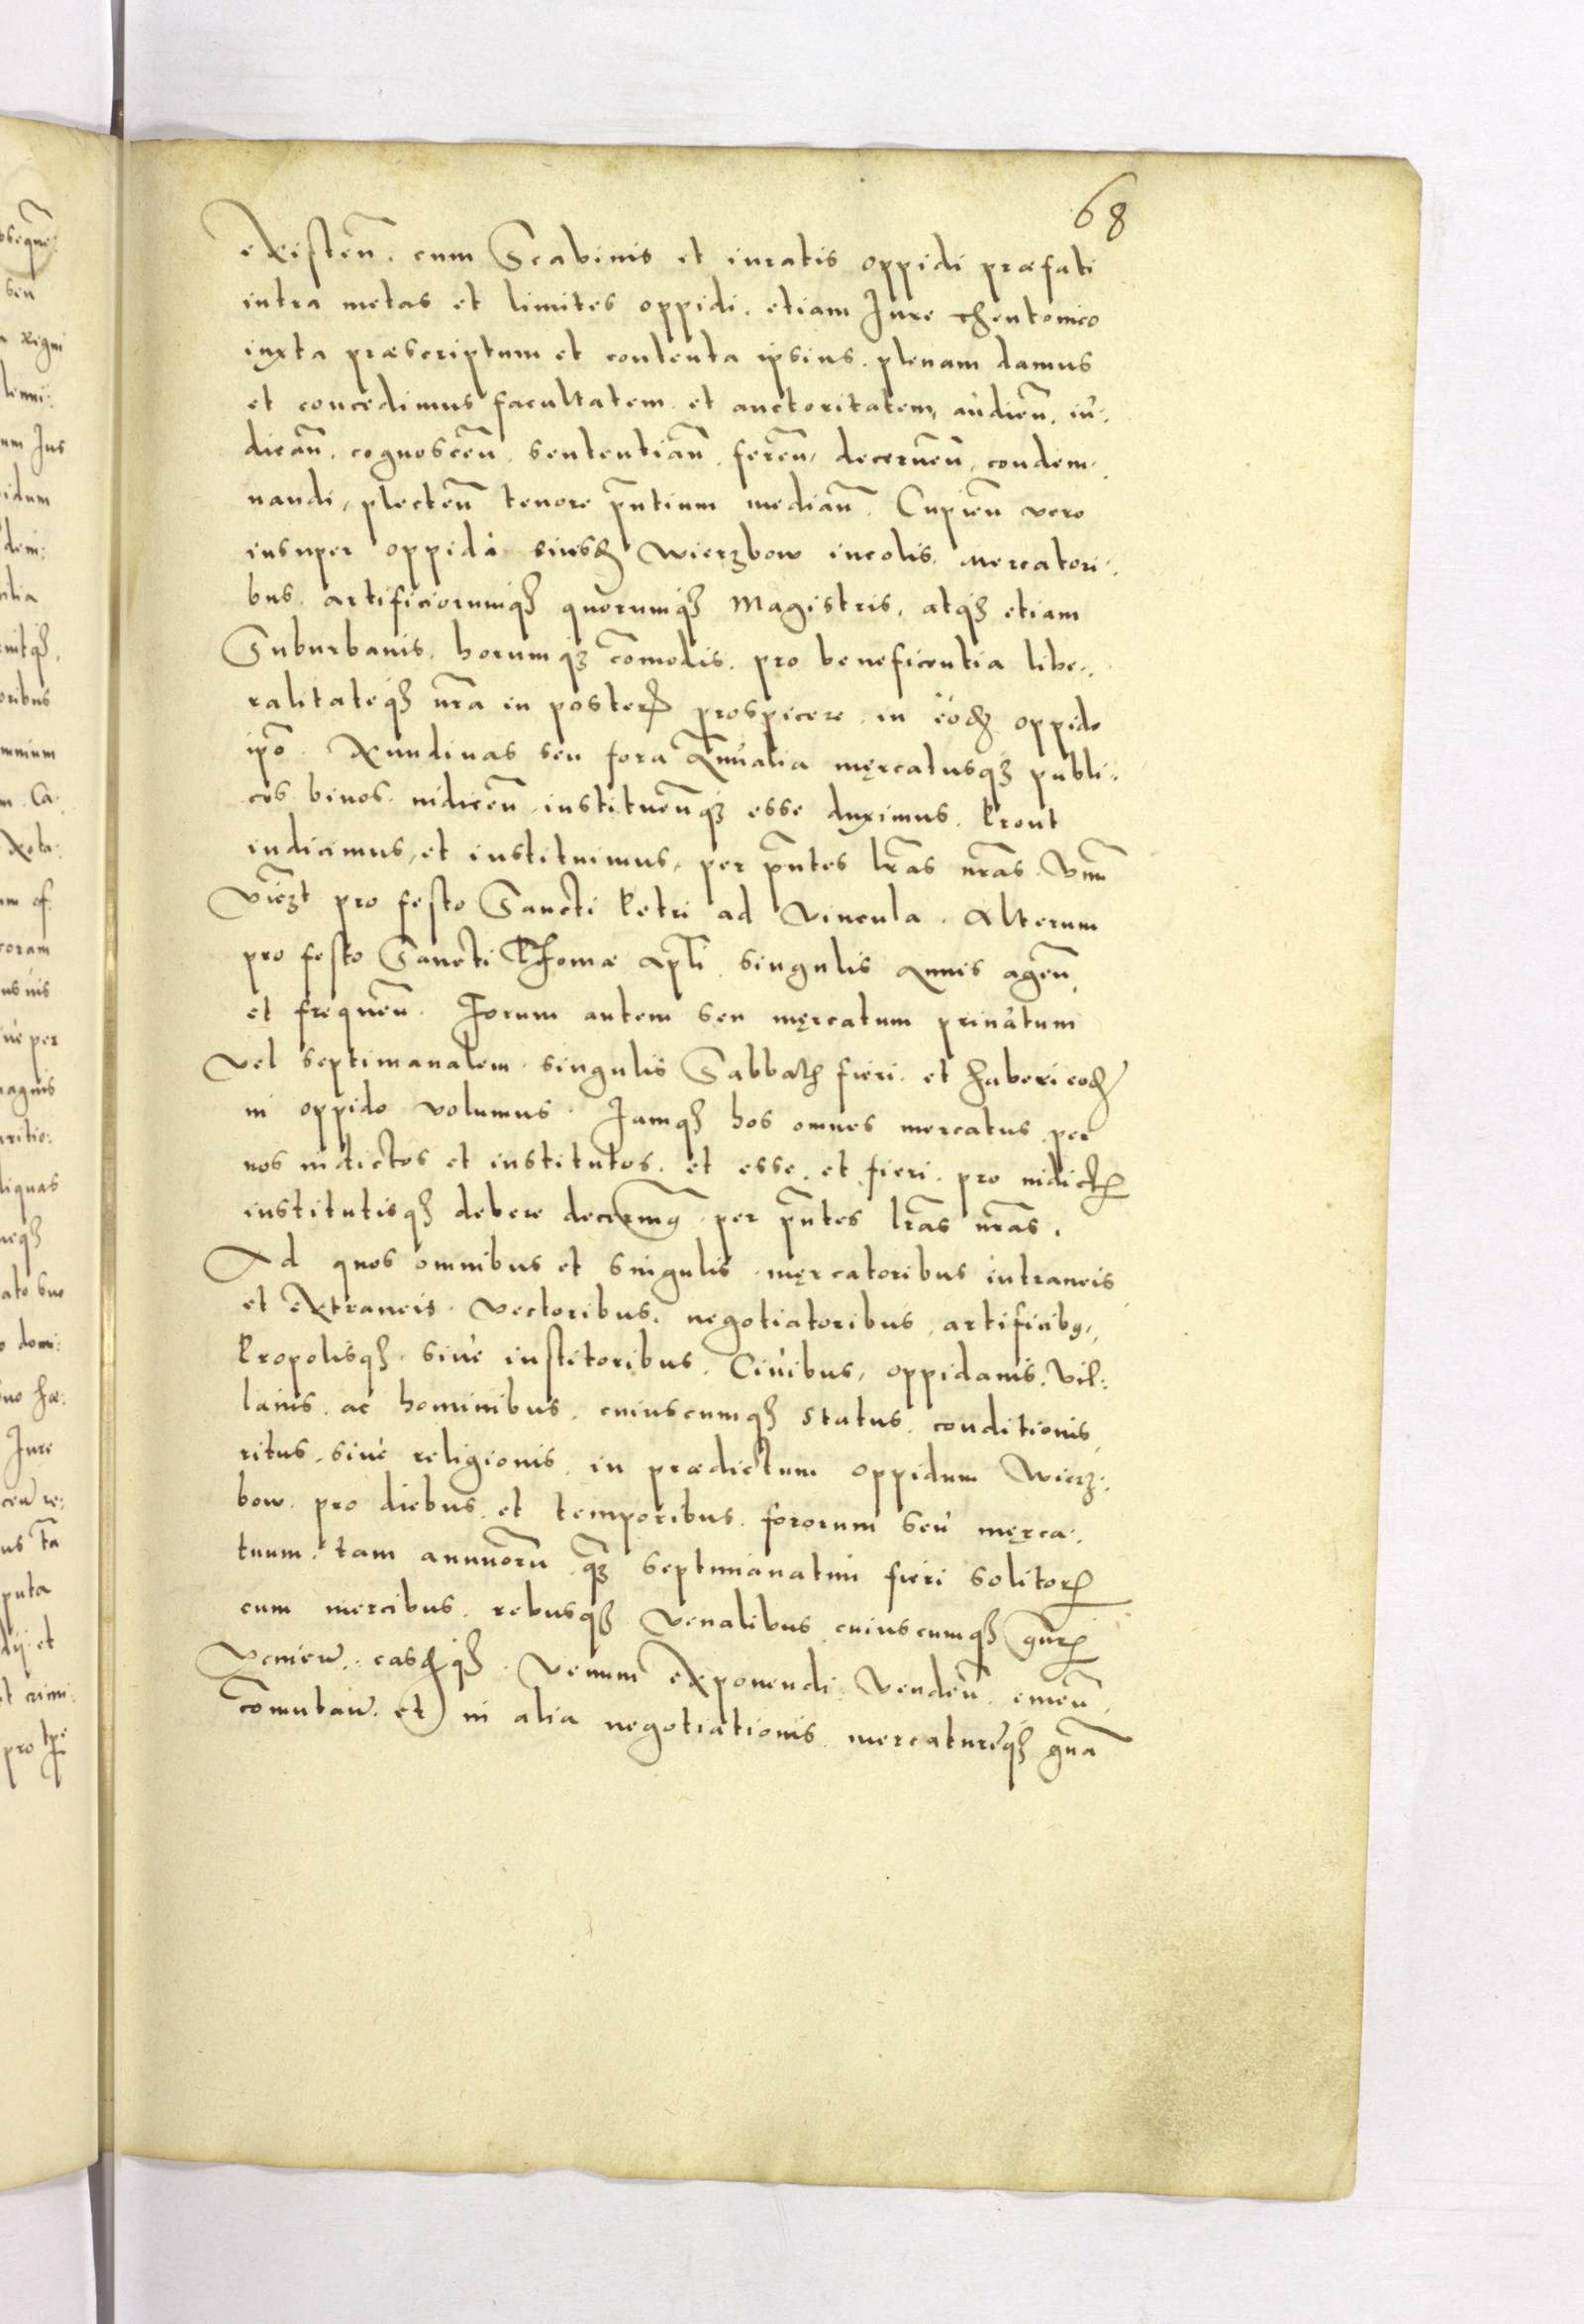 68
existen̄. cum Scabinis et iuratis oppidi præfati
intra metas et limites oppidi. etiam Jure theutonico
iuxta præscriptum et contenta ipsius. plenam damus
et concedimus facultatem et auctoritatem, audien̄. iu:
dican̄. cognoscen̄. sententian̄. feren̄, decernen̄, condem:
nandi, plecten̄ tenore pn̄tium median̄. Cupien̄ vero
insuper oppidi eiusd. Wierzbow incolis. Mercatori:
bus. artificiorumq3 quorumq3 Magistris, atq3 etiam
Suburbanis. horumq3 com̄odis. pro beneficentia libe:
ralitateq3 nr̄a in poster. prospicere. in eod. oppido
ipō. Nundinas seu fora Annualia mercatusq3 publi:
cos binos. indicen̄. instituen̄q3 esse duximus. Prout
indicimus, et instituimus, per pn̄tes lr̄as nr̄as. Vnū
vīczt pro festo Sancti Petri ad vincula. Alterum
pro festo Sancti Thomæ apl̄i singulis Annis agen̄.
et frequen̄. Forum autem seu mercatum priuatum
vel septimanalem. singulis Sabbath. fieri. et haberi eod.
in oppido volumus. Jamq3 hos omnes mercatus per
nos indictos et institutos. et esse. et fieri. pro indict.
institutisq3 debere decernim9. per pn̄tes lr̄as nr̄as.
Ad quos omnibus et singulis. mercatoribus intraneis
et extraneis. vectoribus. negotiatoribus, artificib9,
Propolisq3. siue institoribus. Ciuibus, oppidanis. vil:
lanis. ac hominibus. cuiuscumq3 status. conditionis.
ritus. siue religionis. in prædictum oppidum Wierz:
bow. pro diebus. et temporibus. fororum seu merca:
tuum. tam annuorū q3 septimanatim fieri solitor.
cum mercibus. rebusq3 venalibus cuiuscumq3 gn̄r.
venien̄. easd.q3. venum exponendi. venden̄. emen̄.
com̄utan̄. et in alia negotiationis mercatureq3 gn̄a